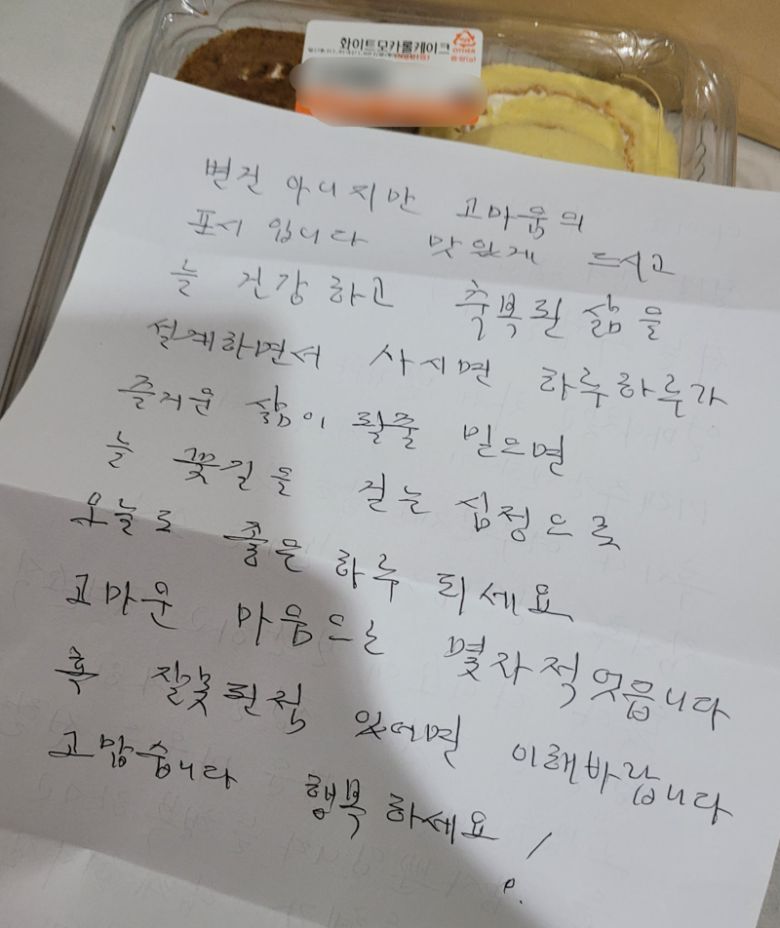 화이트모카롤케이크
OTHER
별건 아니지만 고마움의
표시 입니다 맛있게 드시고
늘 건강 하고 축복된 삶을
설계하면서 사시면 하루하루가
즐거운 삶이 될줄 믿으면
늘 꽃길을 걷는 심정으로
오늘도 좋은 하루 되세요
고마운 마음으로 몇자적엇읍니다
혹 잘못된점 있에면 이해바랍니다
고맙습니다 행복 하세요 /